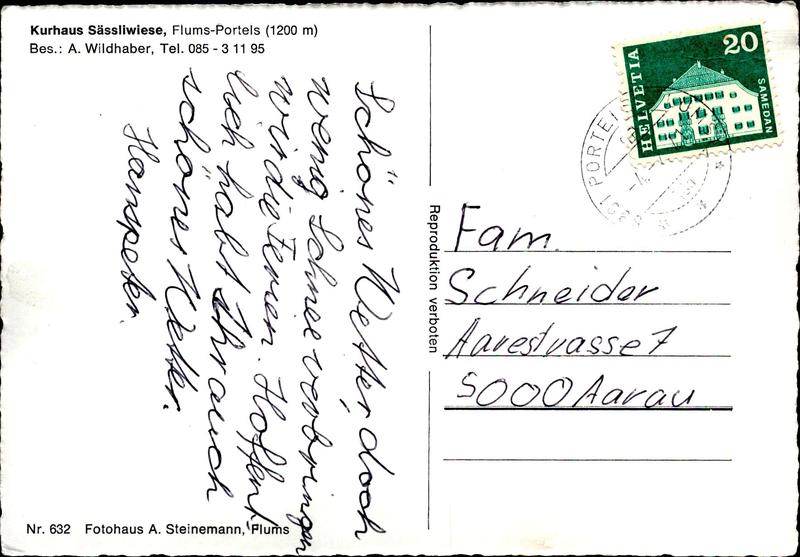 Kurhaus Sässliwiese, Flums-Portels (1200 m)
Bes.: A. Wildhaber, Tel. 085 - 3 11 95
Schönes Wetter, doch
wenig Schnee verbringen
wir die Ferien. Hoffent-
lich habt Ihr auch
schönes Wetter.
Hanspeter.
Nr. 632 Fotohaus A. Steinemann, Flums
Reproduktion verboten
HELVETIA
20
SAMEDAN
8881 PORTELS
Fam.
Schneider
Aarestrasse 7
5000 Aarau